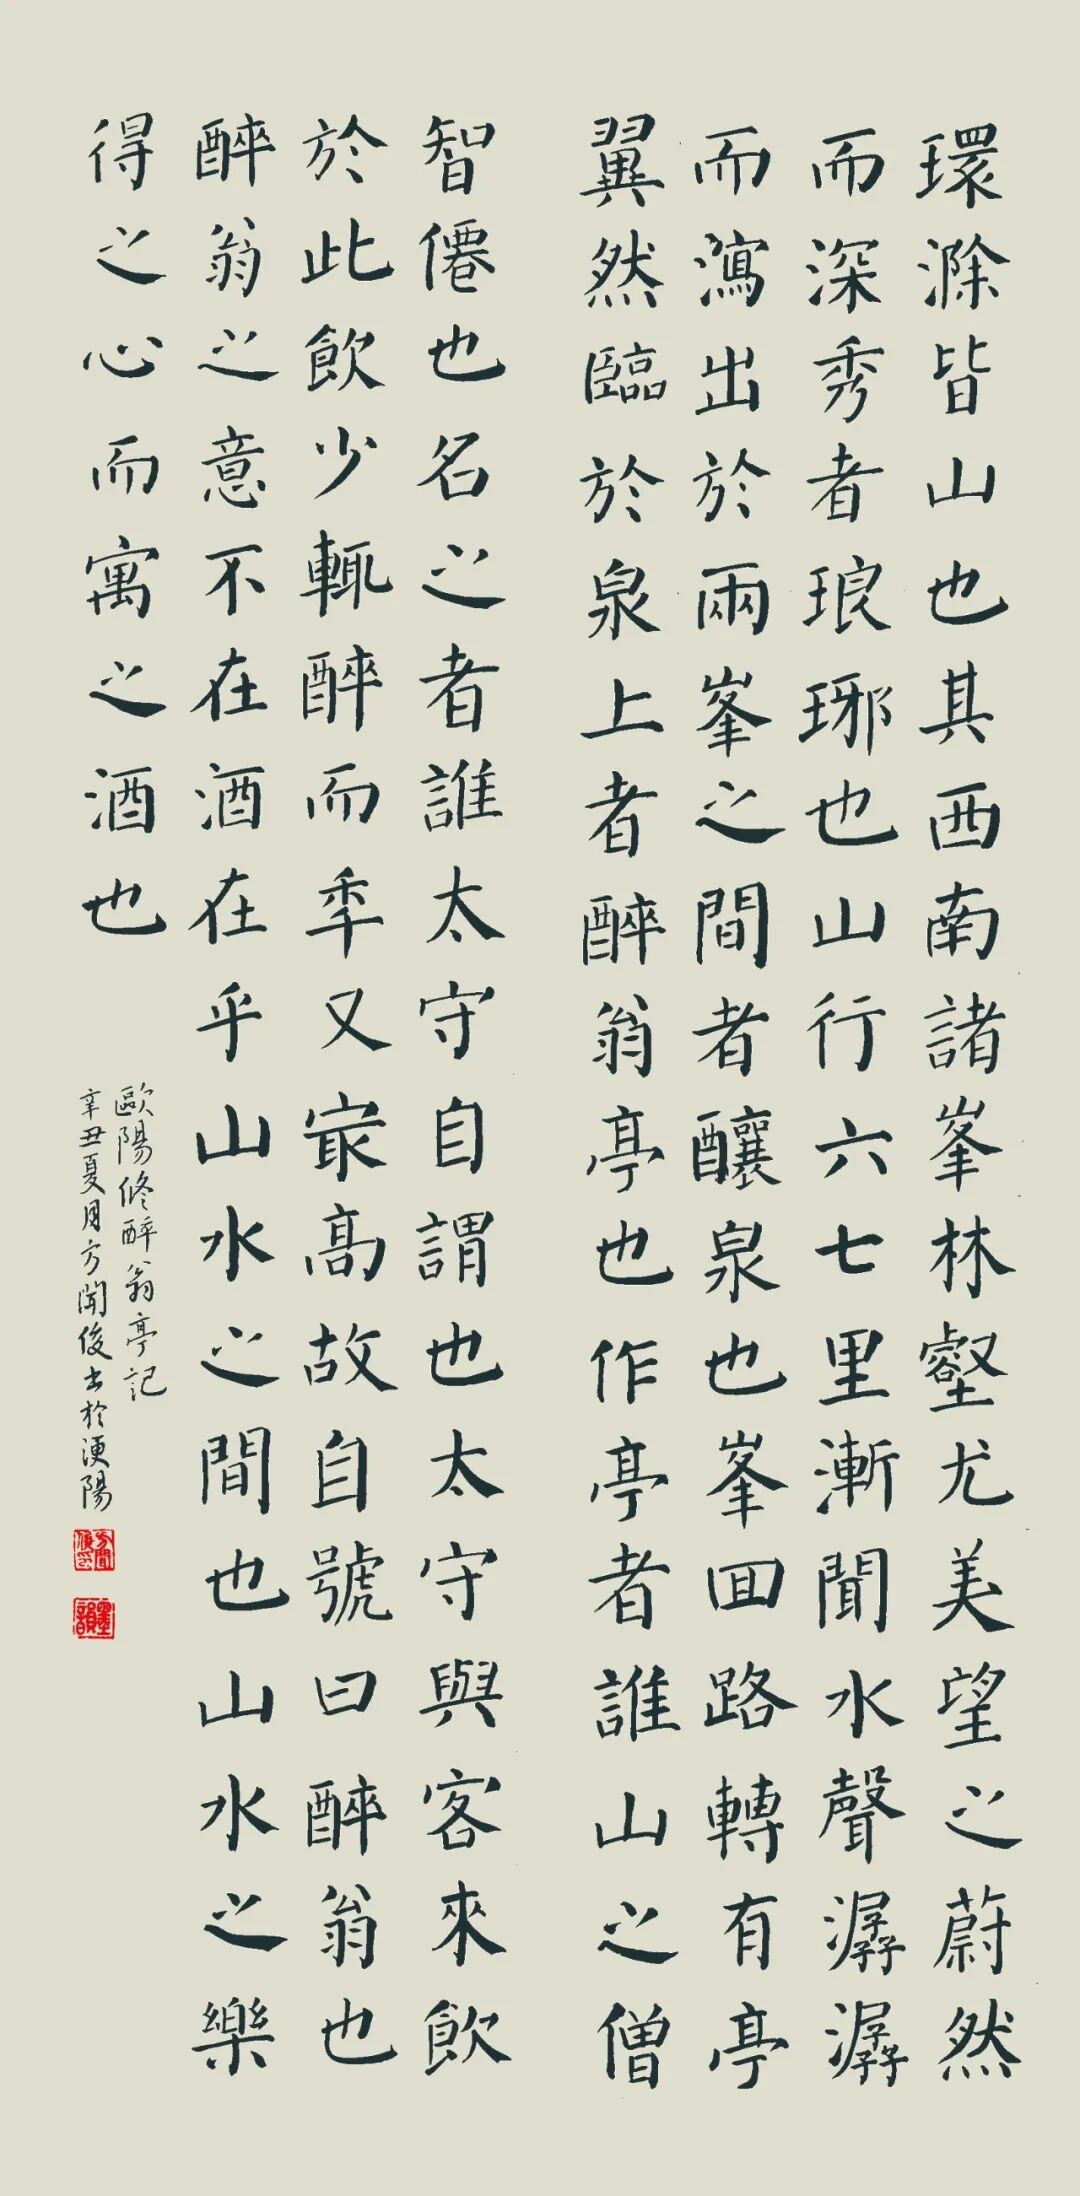 環滁皆山也其西南諸峯林壑尤美望之蔚然
而深秀者琅琊也山行六七里漸聞水聲潺潺
而瀉出於兩峯之間者釀泉也峯回路轉有亭
翼然臨於泉上者醉翁亭也作亭者誰山之僧
智僊也名之者誰太守自謂也太守與客來飲
於此飲少輒醉而年又最高故自號曰醉翁也
醉翁之意不在酒在乎山水之間也山水之樂
得之心而寓之酒也
歐陽修醉翁亭記
辛丑夏月方聞俊書於浭陽
方聞俊印
墨韻